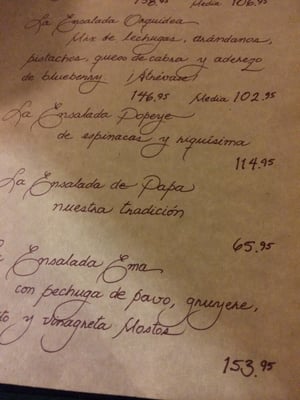 158.95 Media 106.95
La Ensalada Orquidea
Mix de lechugas, arándanos,
pistachos, queso de cabra y aderezo
de blueberry ¡Atrévase!
146.95 Media 102.95
La Ensalada Popeye
de espinacas y riquísima
114.95
La Ensalada de Papa
nuestra tradición
65.95
Ensalada Ema
con pechuga de pavo, gruyere,
y vinagreta Mostos
153.95